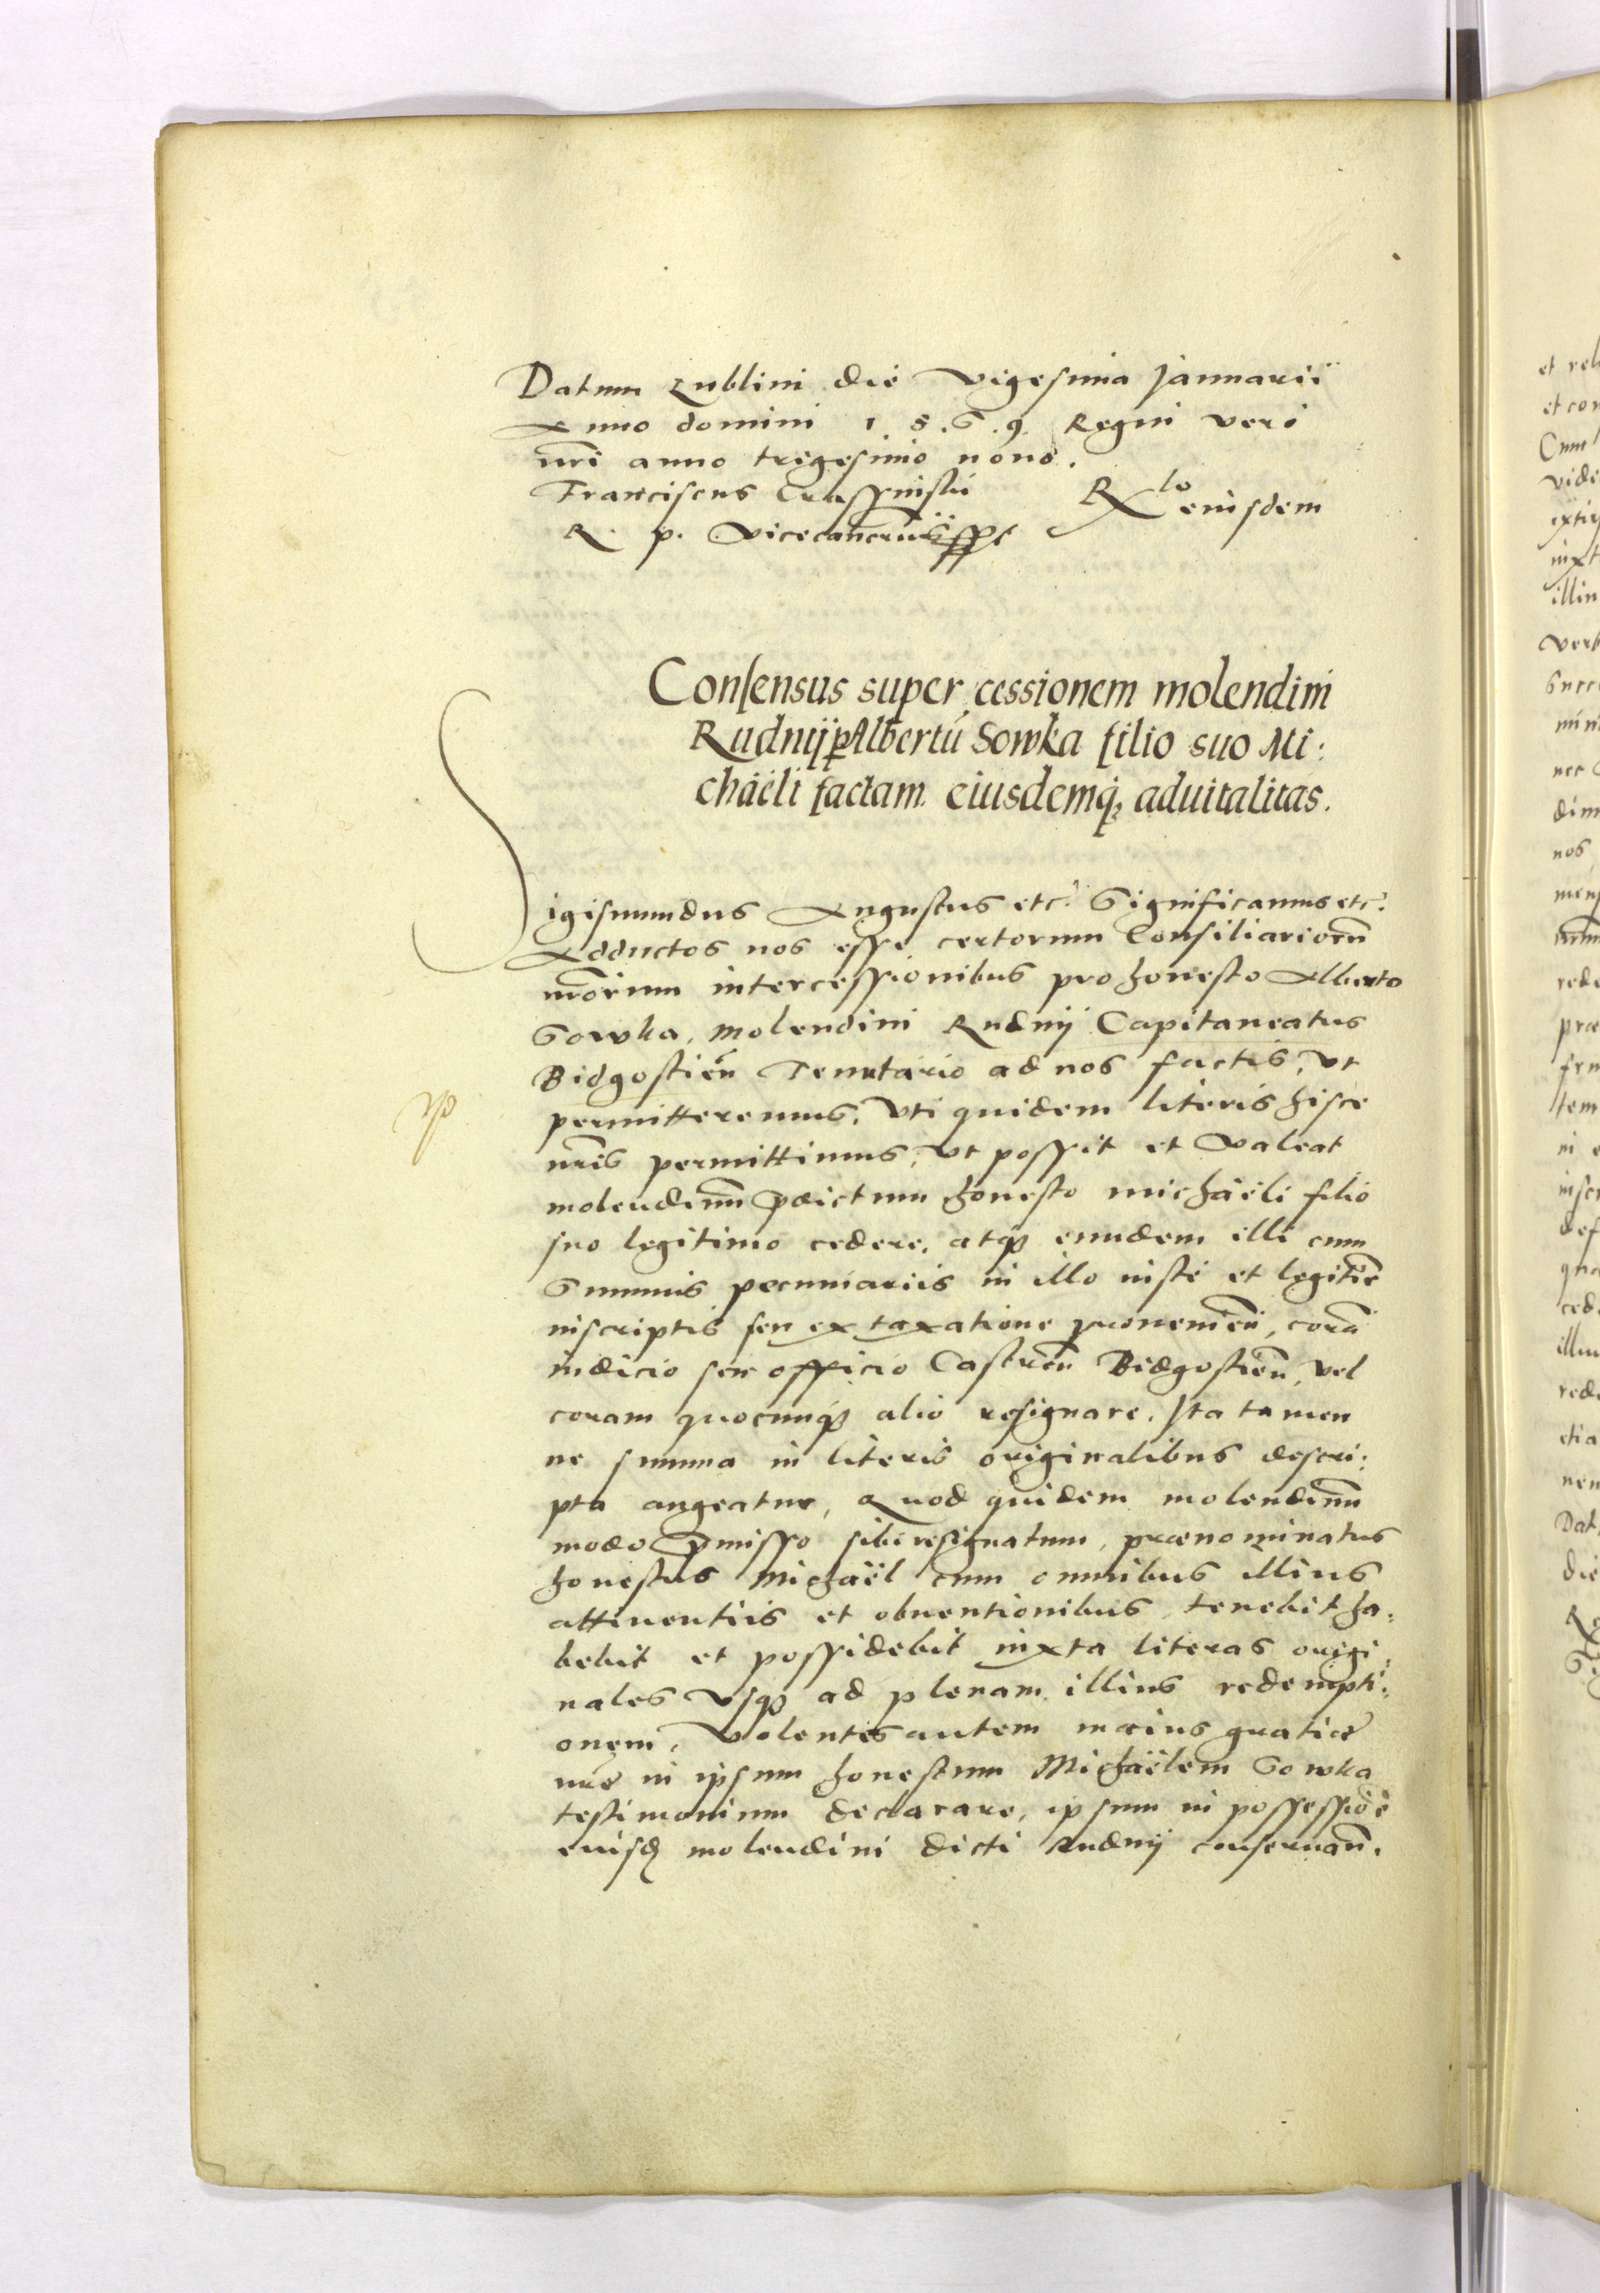 Datum Lublini die Vigesima Januarii
Anno domini 1.5.6.9. Regni vero
nri anno trigesimo nono.
Franciscus Crassinski
R. p. Vicecancrius sspt
Rlo eiusdem
Consensus super cessionem molendini
Rudnij p Albertu Sowka filio suo Mi:
chaëli factam eiusdemq; aduitalitas.
Sigismundus Augustus etc. Significamus etc.
Adductos nos esse certorum Consiliarioru
nrorum intercessionibus pro honesto Alberto
Sowka, Molendini Rudnij Capitaneatus
Bidgostien Tenutario ad nos factis, Vt
permitteremus, Vti quidem literis hisce
nris permittimus, Vt possit et Valeat
molendinu pdictum honesto michaëli filio
suo legitimo cedere, atq; eundem illi cum
Summis pecuniariis in illo iuste et legitie
inscriptis seu ex taxatione prouenien, cora
iudicio seu officio Castren Bidgostien, vel
coram quocunq; alio resignare. Ita tamen
ne summa in literis originalibus descri:
pta augeatur, Quod quidem molendinu
modo pmisso sibi resignatum, prænominatus
honestus Michaël cum omnibus illius
attinentiis et obuentionibus, tenebit ha:
bebit et possidebit iuxta literas origi:
nales Vsq; ad plenam illius redempti:
onem, Volentes autem maius gratiæ
nræ in ipsum honestum Michaëlem Sowka
testimonium declarare, ipsum in possessioe
eiusd molendini dicti Rudnij conseruan.